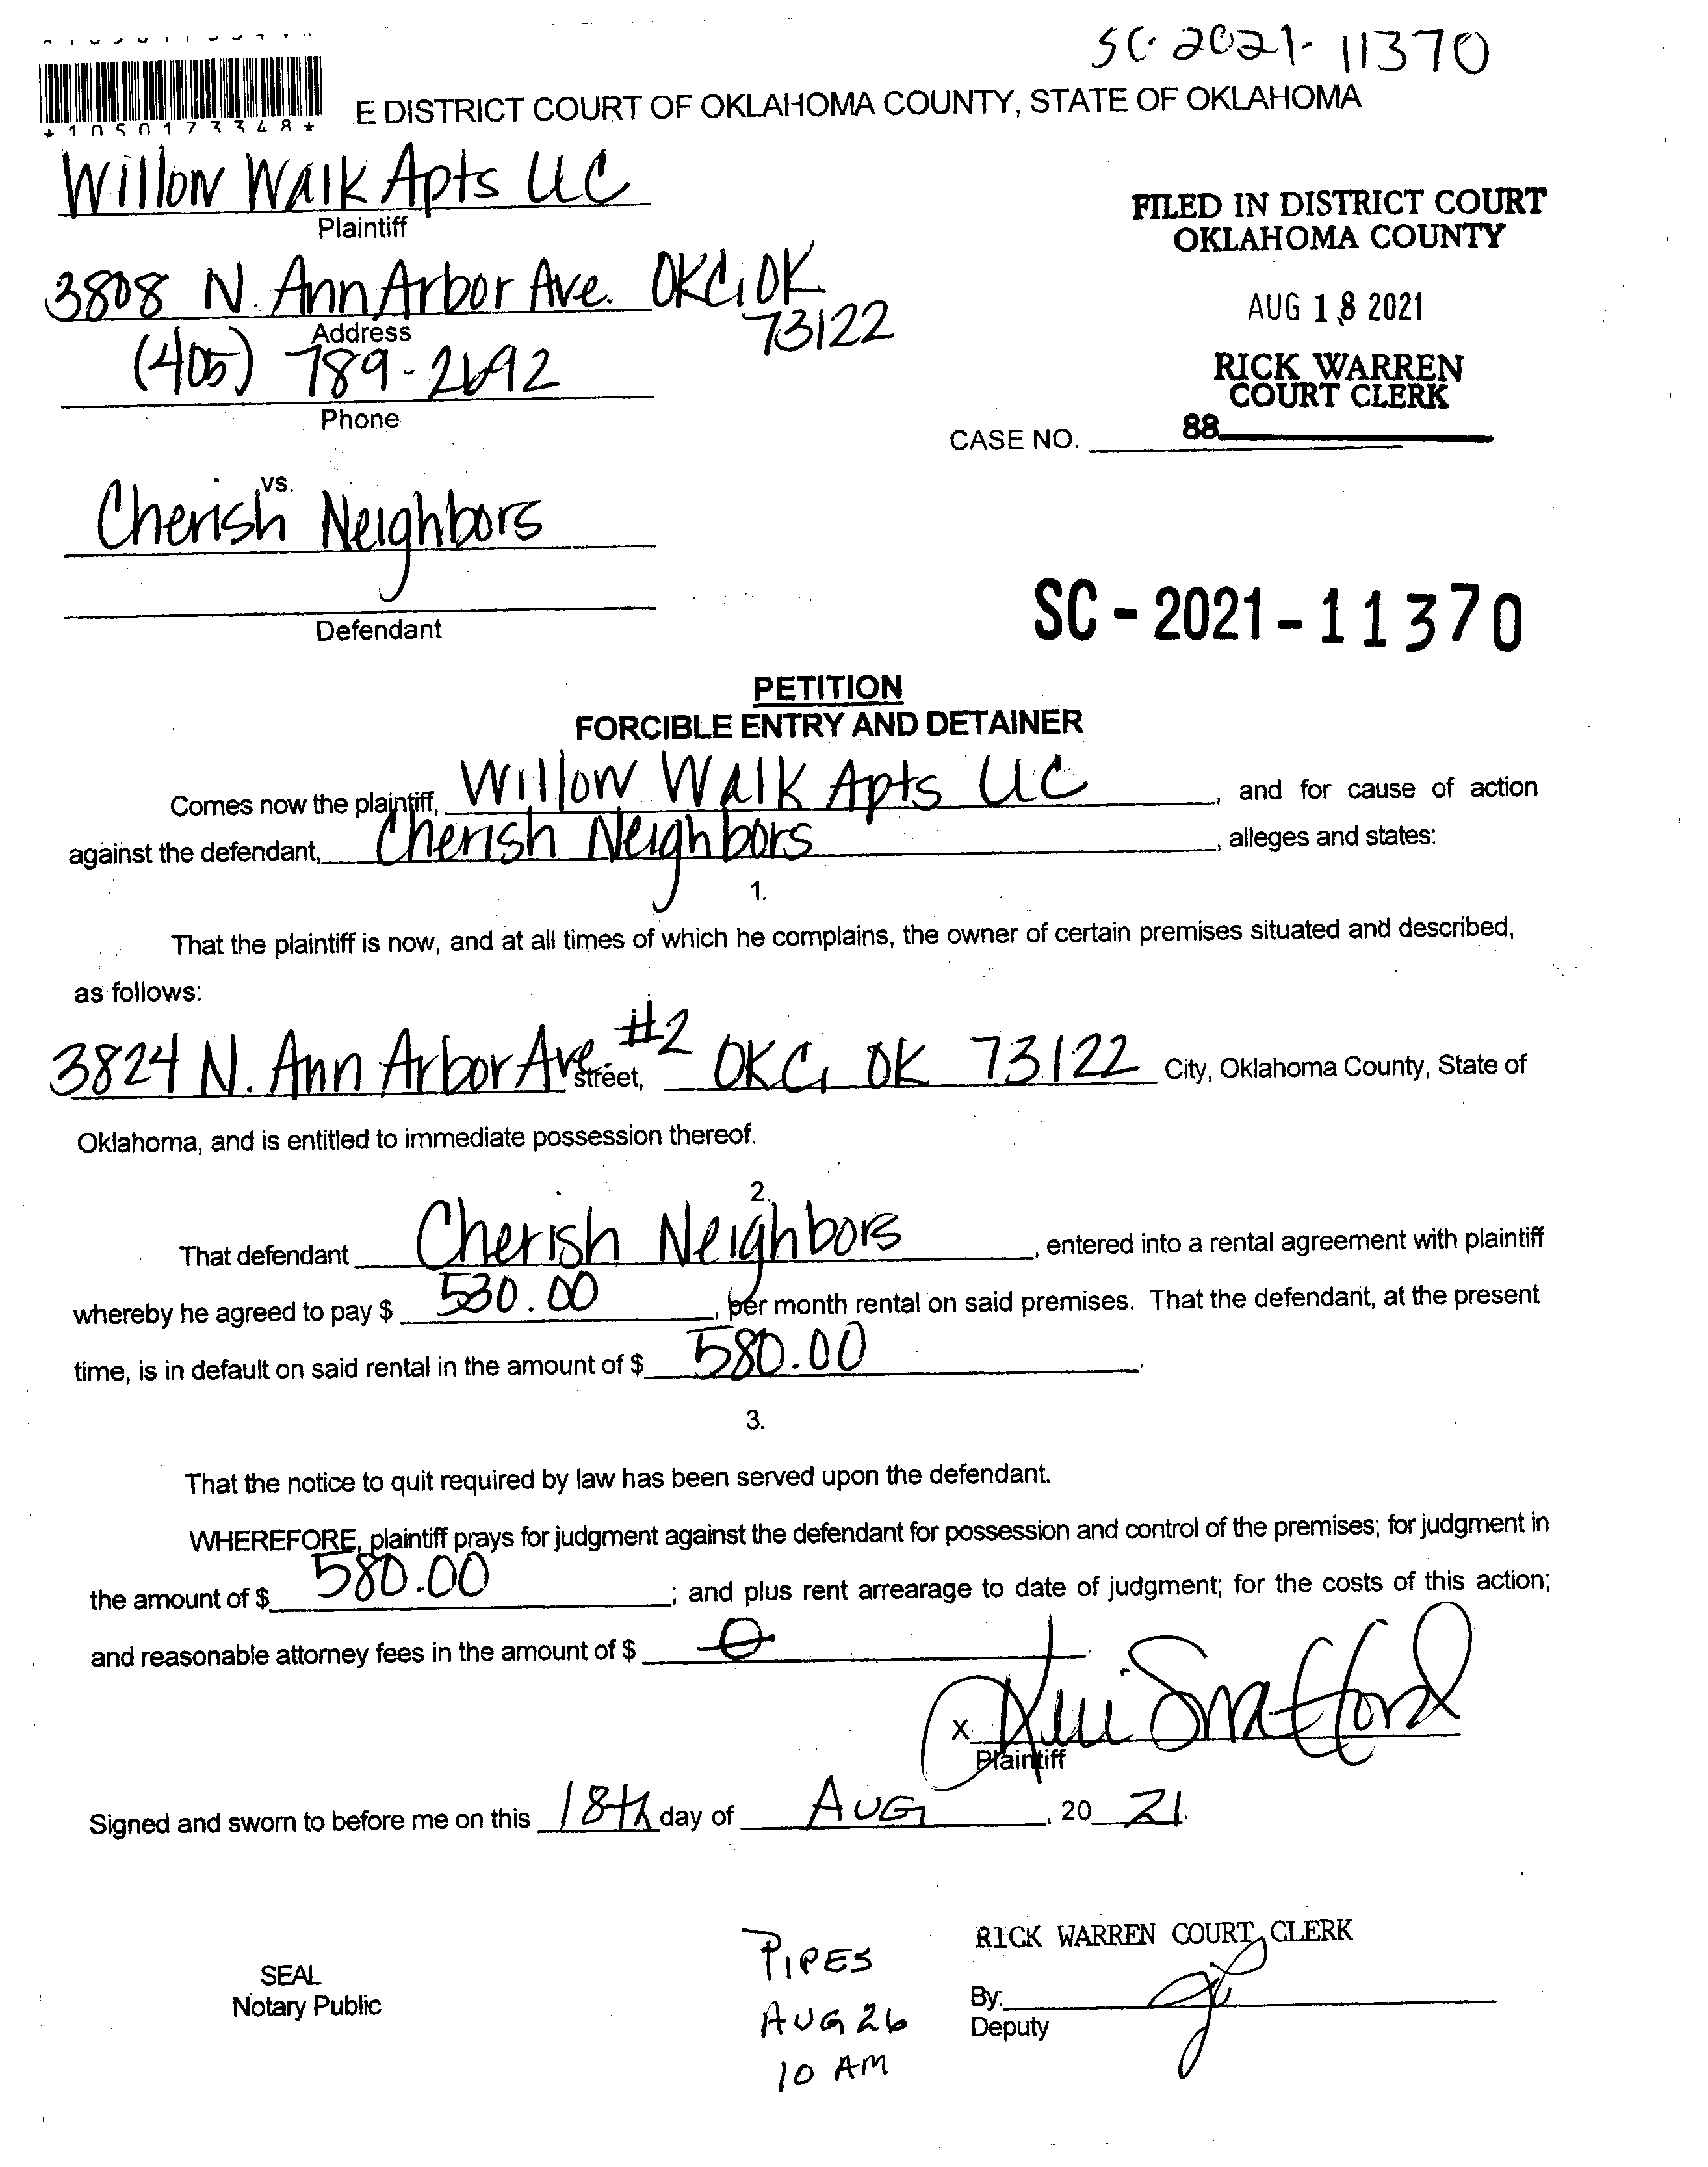 SC-2021-11370
*1050173348*
E DISTRICT COURT OF OKLAHOMA COUNTY, STATE OF OKLAHOMA
Willow Walk Apts LLC
Plaintiff
FILED IN DISTRICT COURT
OKLAHOMA COUNTY
3808 N. Ann Arbor Ave. OKC, OK
73122
Address
AUG 18 2021
(405) 789-2692
Phone
RICK WARREN
COURT CLERK
88
CASE NO.
vs.
Cherish Neighbors
Defendant
SC-2021-11370
PETITION
FORCIBLE ENTRY AND DETAINER
Comes now the plaintiff, Willow Walk Apts LLC, and for cause of action
against the defendant, Cherish Neighbors, alleges and states:
1.
That the plaintiff is now, and at all times of which he complains, the owner of certain premises situated and described,
as follows:
3824 N. Ann Arbor Ave. #2 street, OKC, OK 73122 City, Oklahoma County, State of
Oklahoma, and is entitled to immediate possession thereof.
2.
That defendant Cherish Neighbors, entered into a rental agreement with plaintiff
whereby he agreed to pay $ 530.00, per month rental on said premises. That the defendant, at the present
time, is in default on said rental in the amount of $ 580.00.
3.
That the notice to quit required by law has been served upon the defendant.
WHEREFORE, plaintiff prays for judgment against the defendant for possession and control of the premises; for judgment in
the amount of $ 580.00; and plus rent arrearage to date of judgment; for the costs of this action;
and reasonable attorney fees in the amount of $ 0.
X
Plaintiff
Signed and sworn to before me on this 18th day of AUG, 20 21.
RICK WARREN COURT CLERK
PIPES
SEAL
Notary Public
By:
AUG 26
Deputy
10 AM